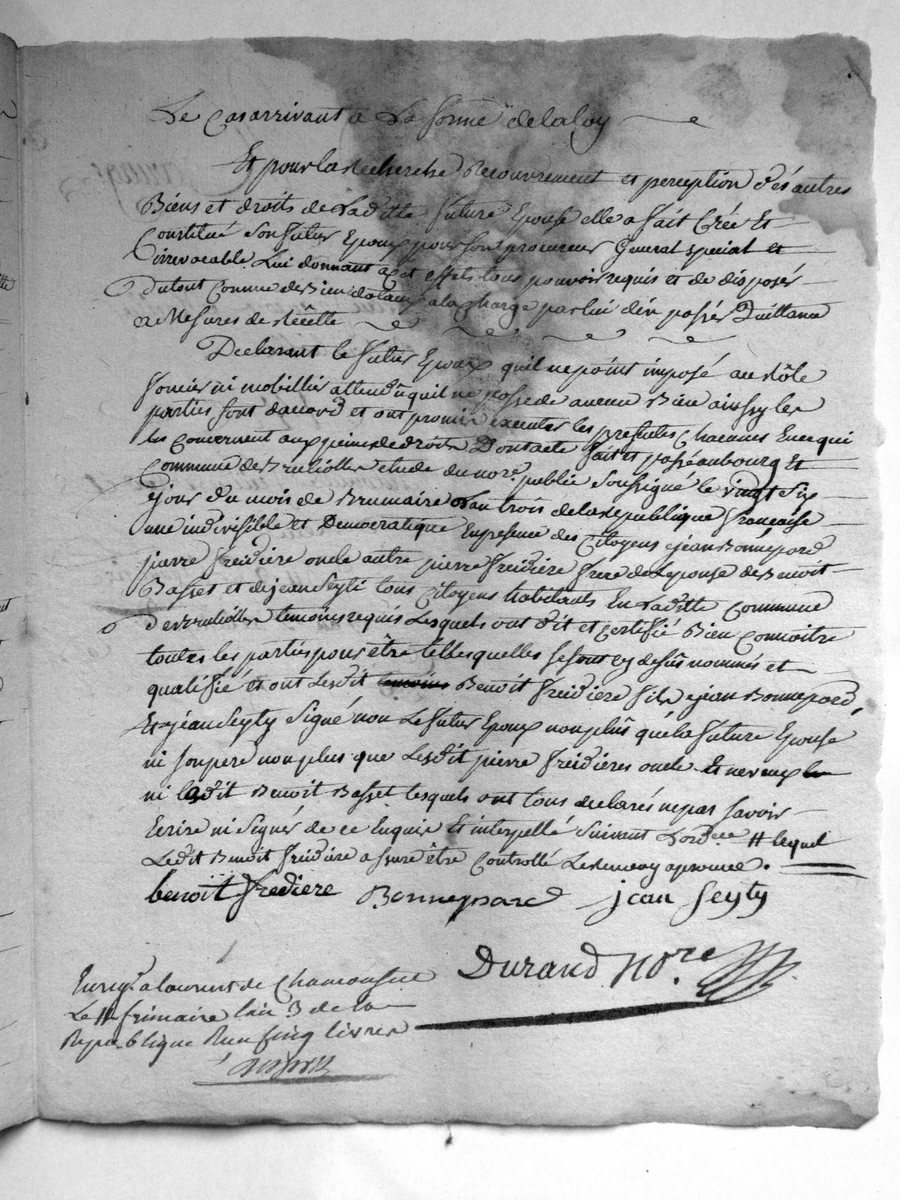 Le Cas arrivant a La forme de la loy
Et pour la Recherche Recouvrement et perception des autres
Biens et droits de Laditte future Epouse elle a fait Créé Et
Constitué Son futur Epoux pour Son procureur General special et
irrevocable Lui donnant a cet effet tous pouvoir requis et de disposés
du tout comme de Bien dotaux a la Charge par lui d'en passér Quittance
a Mesures de Récètte
Declarant le futur Epoux quil ne point imposé au Rôle
foncier ni mobillier attendu quil ne possede aucun Bien ainssy les
parties sont dacord et ont promis executer les presentes Chacunes En ce qui
les Concernent aux peines de droits Dont acte fait et passé au bourg Et
Commune de Brulioles etude du nore. publie Soussigné le vingt Six
ejour du mois de Brumaire L'an trois de la Republique française
une indivisible et Democratique En presence des Citoyens ejean Bonnepard
pierre freidiere oncle autre pierre freidiere frere de Lepouse de Benoit
Basset et de jean Seyti tous Citoyens habitants En Laditte Commune
de Brulioles temoins requis Lesquels ont dit et certifié Bien Connoitre
toutes les parties pour être telles quelles Se sont cy dessûs nommés et
qualifié et ont Lesdit temoins Benoit freidiere fils ejean Bonnepard,
Et ejean Seyty Signé non Le futur Epoux non plûs que la future Epouse
ni son pere non plus que Lesdit pierre freidieres oncle Et neveux
ni ledit Benoit Basset lesquels ont tous declarés ne pas Savoir
Ecrire ni Signer de ce Enquis Et interpellé Suivant L'ordce # lequel
Ledit Benoit freidiere a
être Controllé
benoit fredière Bonnepard jean Seyty
Durand Nore
Enregé a
de Chamousset
Le 11 frimaire l'an 3 de la
Republique Reçu cinq livres